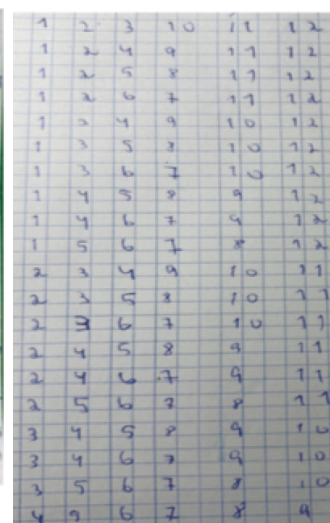 1 2 3 10 11 12
1 2 4 9 11 12
1 2 5 8 11 12
1 2 6 7 11 12
1 3 4 9 10 12
1 3 5 8 10 12
1 3 6 7 10 12
1 4 5 8 9 12
1 4 6 7 9 12
1 5 6 7 8 12
2 3 4 9 10 11
2 3 5 8 10 11
2 3 6 7 10 11
2 4 5 8 9 11
2 4 6 7 9 11
2 5 6 7 8 11
3 4 5 8 9 10
3 4 6 7 9 10
3 5 6 7 8 10
4 5 6 7 8 9